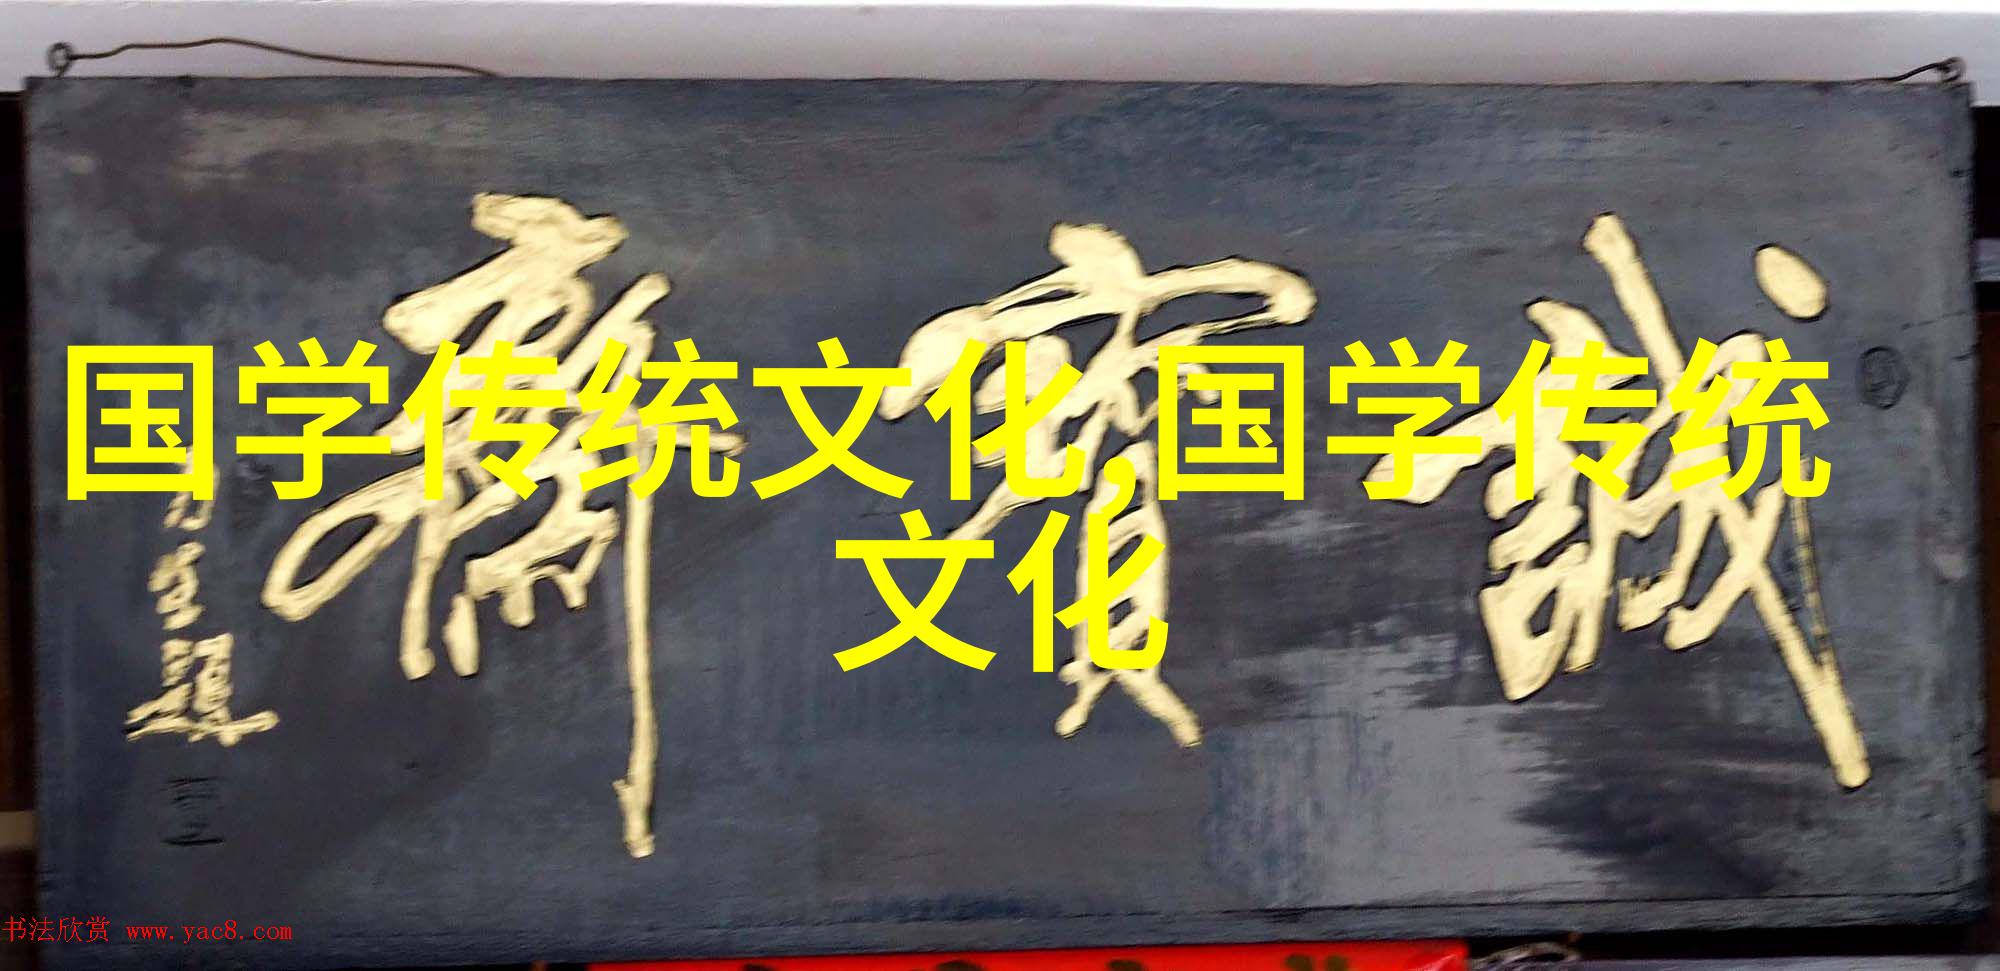 国学传统文化,国学传统
文化
誠寶齋
书法欣赏 www.yac8.com